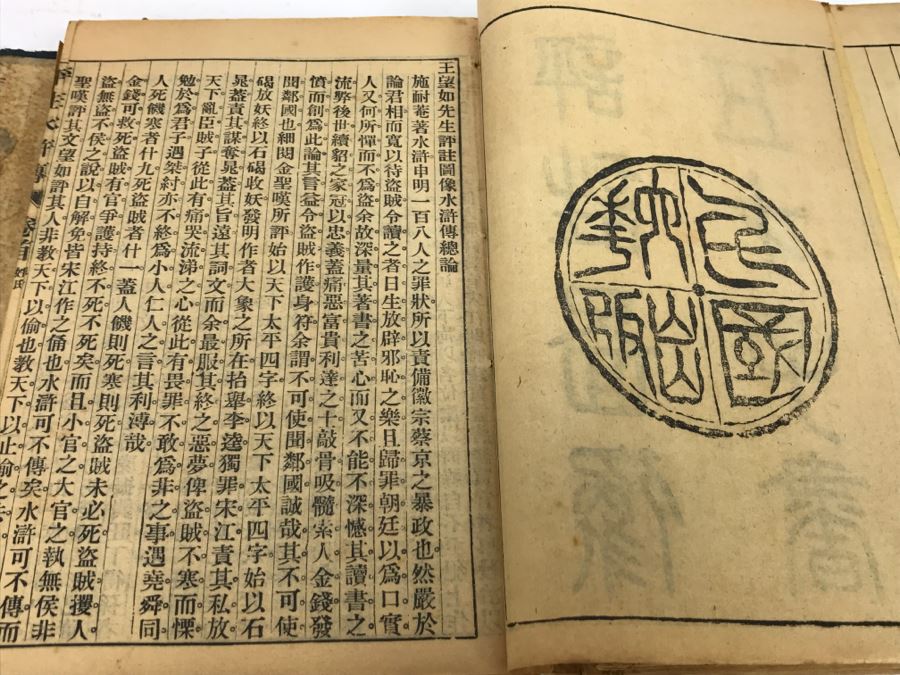 民國秋季出版
王望如先生評註圖像水滸傳總論
施耐菴著水滸申明一百八人之罪狀所以責備徽宗蔡京之暴政也。然嚴於
論君相而寬以待盜賊令讀之者日生放辟邪恥之樂且歸罪朝廷以爲口實
人又何所憚而不爲盜余故深量其著書之苦心而又不能不深憾其讀書之
流弊後世續貂之家冠以忠義蓋痛惡富貴利達之士敲骨吸髓索人金錢發
憤而創爲此論其言益令盜賊作護身符余謂不可使聞鄰國誠哉其不可使
聞鄰國也細閱金聖嘆所評始以天下太平四字終以天下太平四字始以石
碣放妖終以石碣收妖發明作者大象之所在抬舉李逵獨罪宋江責其私放
晁蓋責其謀奪晁蓋其旨遠其詞文而余最服其終之惡夢俾盜賊不寒而慄
天下亂臣賊子從此有痛哭流涕之心從此有畏罪不敢爲非之事遇堯舜同
勉於爲君子遇桀紂亦不終爲小人仁人之言其利溥哉
人死饑寒者什九死盜賊者什一蓋人饑則死寒則死盜賊未必死盜賊攫人
金錢可救死盜賊有官爭護持終不死不死矣而且小官之大官之執無侯非
盜無盜不侯之說以自解免皆宋江作之俑也水滸可不傳矣水滸可不傳而
聖嘆評其文望如評其人非教天下以偷也教天下以止偷之
卷首 姓氏